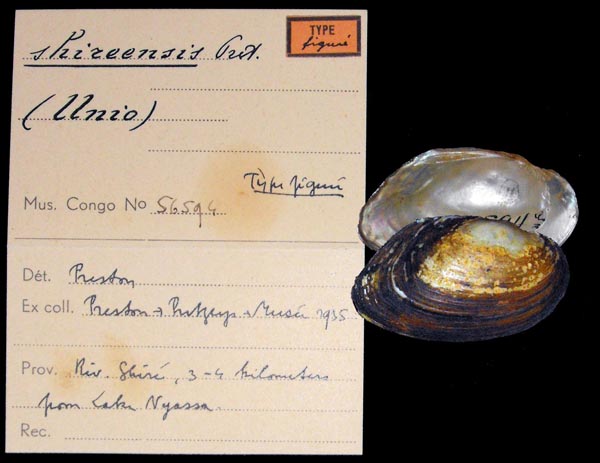 TYPE
figuré
shireensis Prest.
(Unio)
Type figuré
Mus. Congo No 56594
Dét. Preston
Ex coll. Preston → Putzeys → Musée 1935
Prov. Riv. Shiré, 3-4 kilometers
from Lake Nyassa.
Rec.